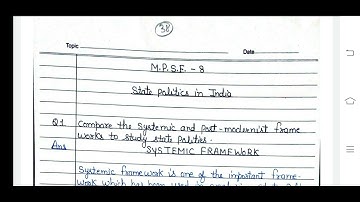 38
Topic Date
M.P.S.E. - 8
State politics in India
Q1 Compare the systemic and post-modernist frame
works to study state politics.
Ans SYSTEMIC FRAMEWORK
Systemic framework is one of the important frame-
work which has been used